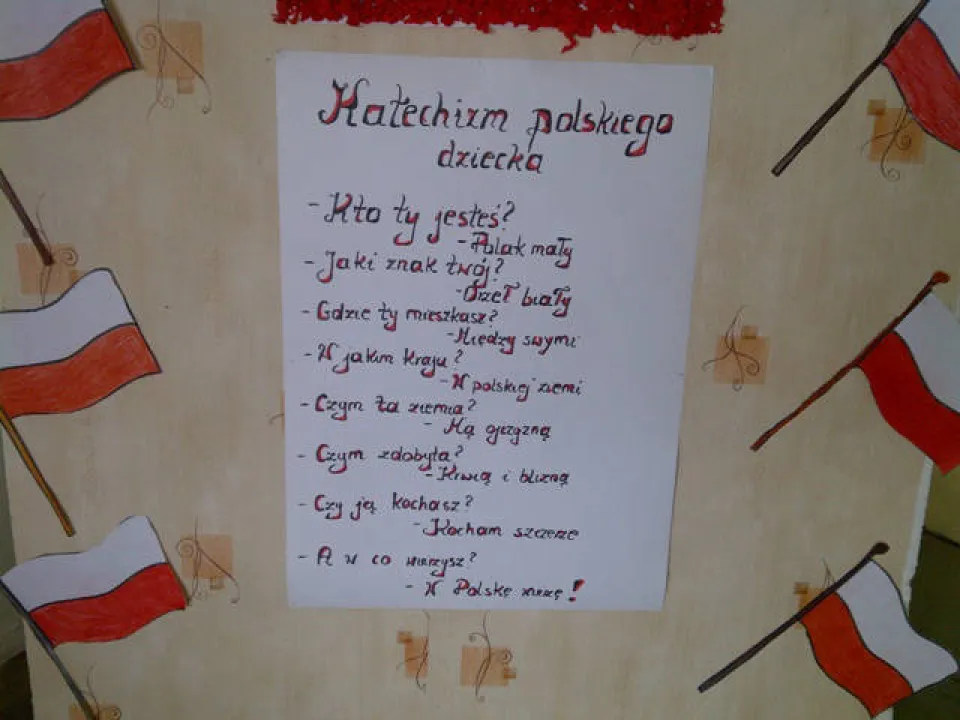 Katechizm polskiego
dziecka
- Kto ty jesteś?
- Polak mały
- Jaki znak twój?
- Orzeł biały
- Gdzie ty mieszkasz?
- Między swymi
- W jakim kraju?
- W polskiej ziemi
- Czym ta ziemia?
- Mą ojczyzną
- Czym zdobyta?
- Krwią i blizną
- Czy ją kochasz?
- Kocham szczerze
- A w co wierzysz?
- W Polskę wierzę!